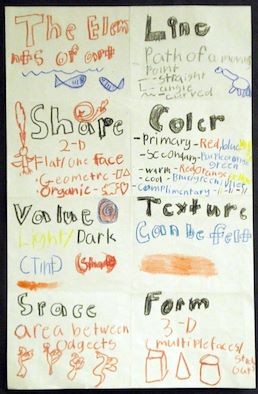 The Elem
nts of art
Line
Path of a moving
Point
- straight
L - angle
~ - curved
Shape
2-D
Flat/one face
Geometric-O△
Organic-
Color
-Primary-Red, blue,
-Secondary-Purple, orange,
green
-warm-Red, orange,
-cool-Blue, green, violet
Complimentary-11-11-11
Value
Light/Dark
(Tint)
(Shade)
Texture
Can be felt
Space
area between
Odgects
Form
3-D
(multiple faces/
Stick
out)